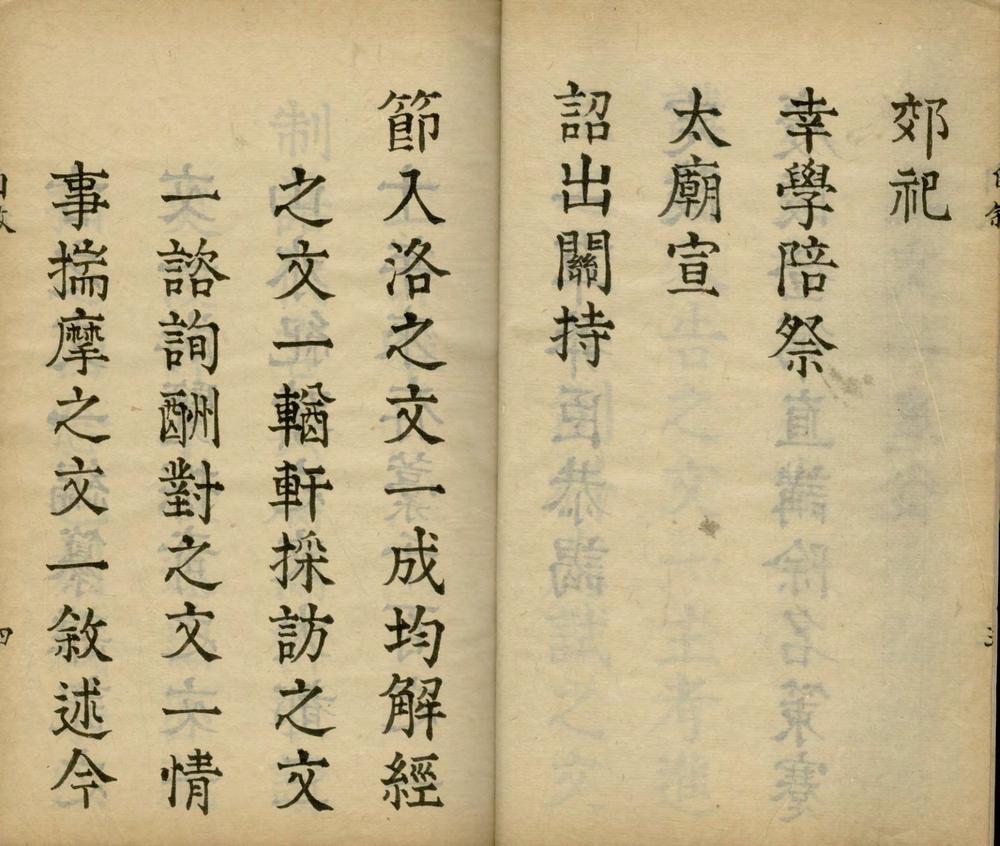 郊祀
幸學陪祭
太廟宣
詔出關持
節入洛之文一成均解經
之文一輶軒採訪之文
一諮詢酬對之文一情
事揣摩之文一敘述今
四